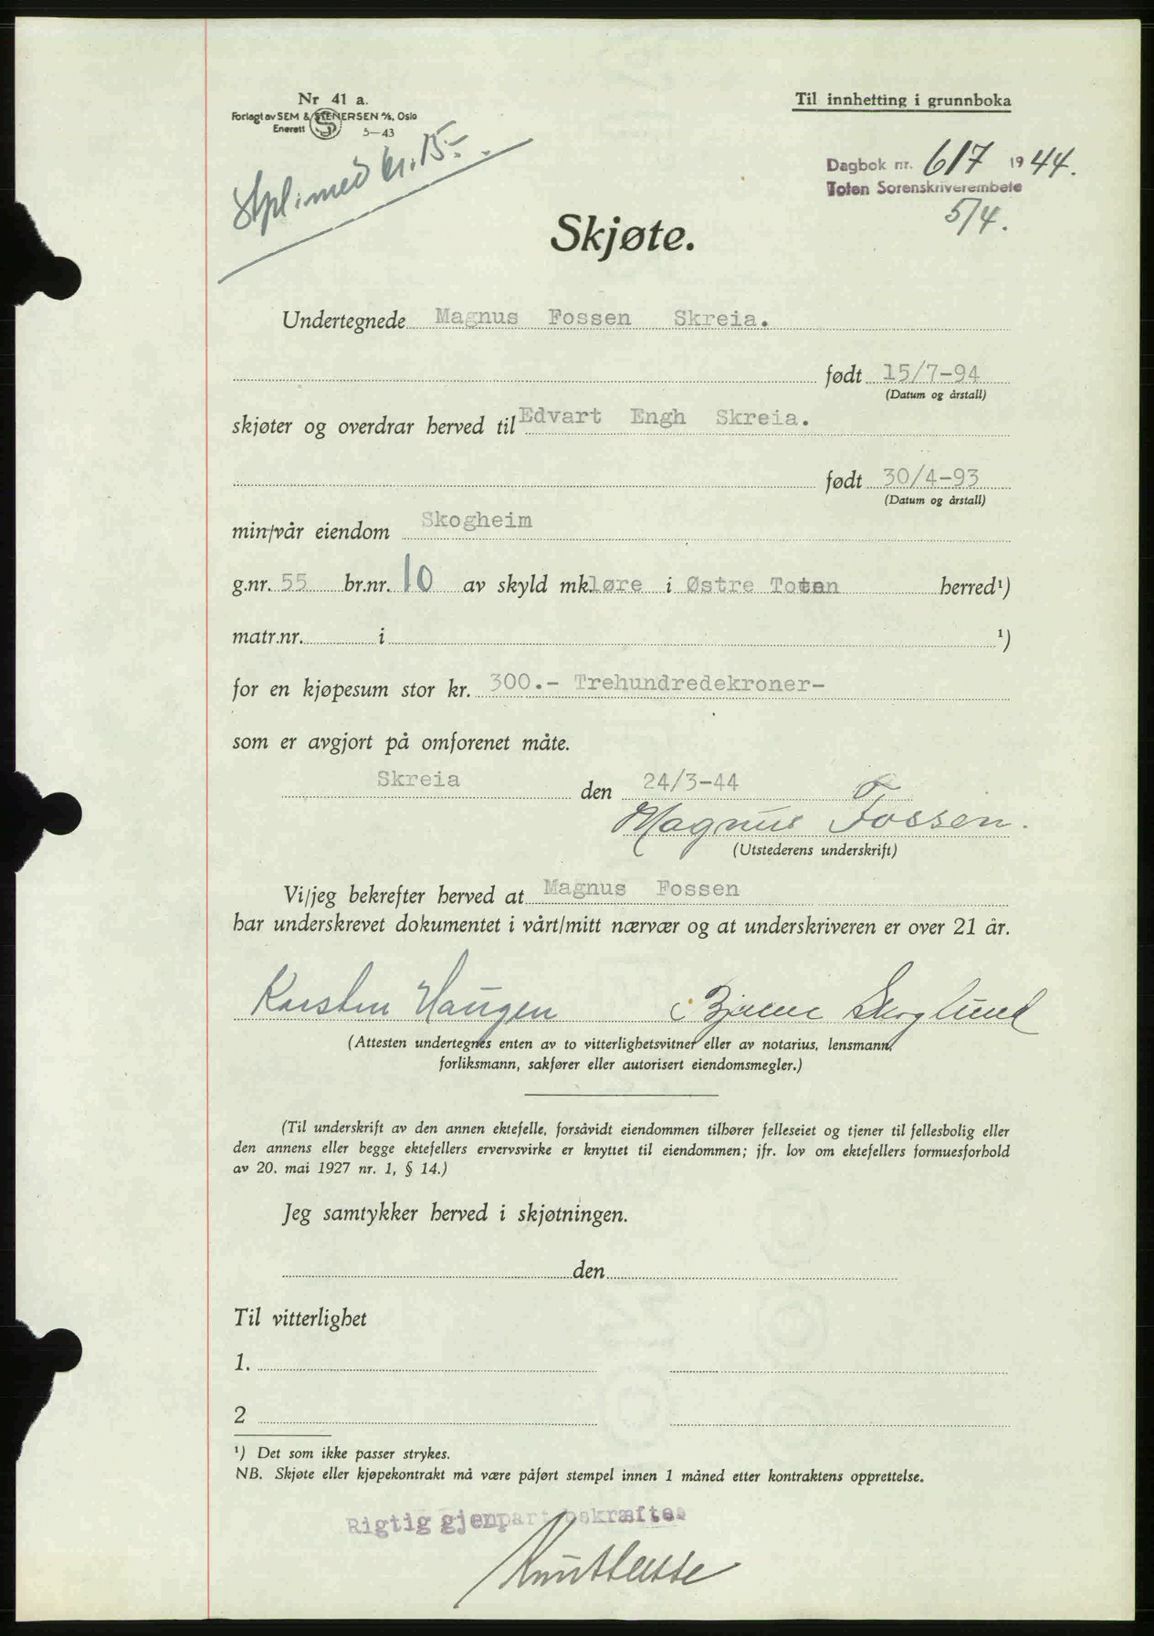 Nr 41 a.
Forlagt av SEM & STENERSEN A/S, Oslo
Enerett 5—43
Til innhefting i grunnboka
Stpl. med kr. 15.-
Dagbok nr. 617 1944.
Toten Sorenskriverembete
5/4.
Skjøte.
Undertegnede Magnus Fossen Skreia.
født 15/7-94
(Datum og årstall)
skjøter og overdrar herved til Edvart Engh Skreia.
født 30/4-93
(Datum og årstall)
min/vår eiendom Skogheim
g.nr. 55 br.nr. 10 av skyld mk.løre i Østre Toten herred¹)
matr.nr. i ¹)
for en kjøpesum stor kr. 300.- Trehundredekroner-
som er avgjort på omforenet måte.
Skreia den 24/3-44
Magnus Fossen.
(Utstederens underskrift)
Vi/jeg bekrefter herved at Magnus Fossen
har underskrevet dokumentet i vårt/mitt nærvær og at underskriveren er over 21 år.
Karsten Haugen Bjarne Skoglund
(Attesten undertegnes enten av to vitterlighetsvitner eller av notarius, lensmann,
forliksmann, sakfører eller autorisert eiendomsmegler.)
(Til underskrift av den annen ektefelle, forsåvidt eiendommen tilhører felleseiet og tjener til fellesbolig eller
den annens eller begge ektefellers ervervsvirke er knyttet til eiendommen; jfr. lov om ektefellers formuesforhold
av 20. mai 1927 nr. 1, § 14.)
Jeg samtykker herved i skjøtningen.
den
Til vitterlighet
1.
2
¹) Det som ikke passer strykes.
NB. Skjøte eller kjøpekontrakt må være påført stempel innen 1 måned etter kontraktens opprettelse.
Rigtig gjenpart bekræftes